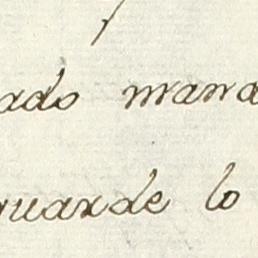 ado mana
guarde lo